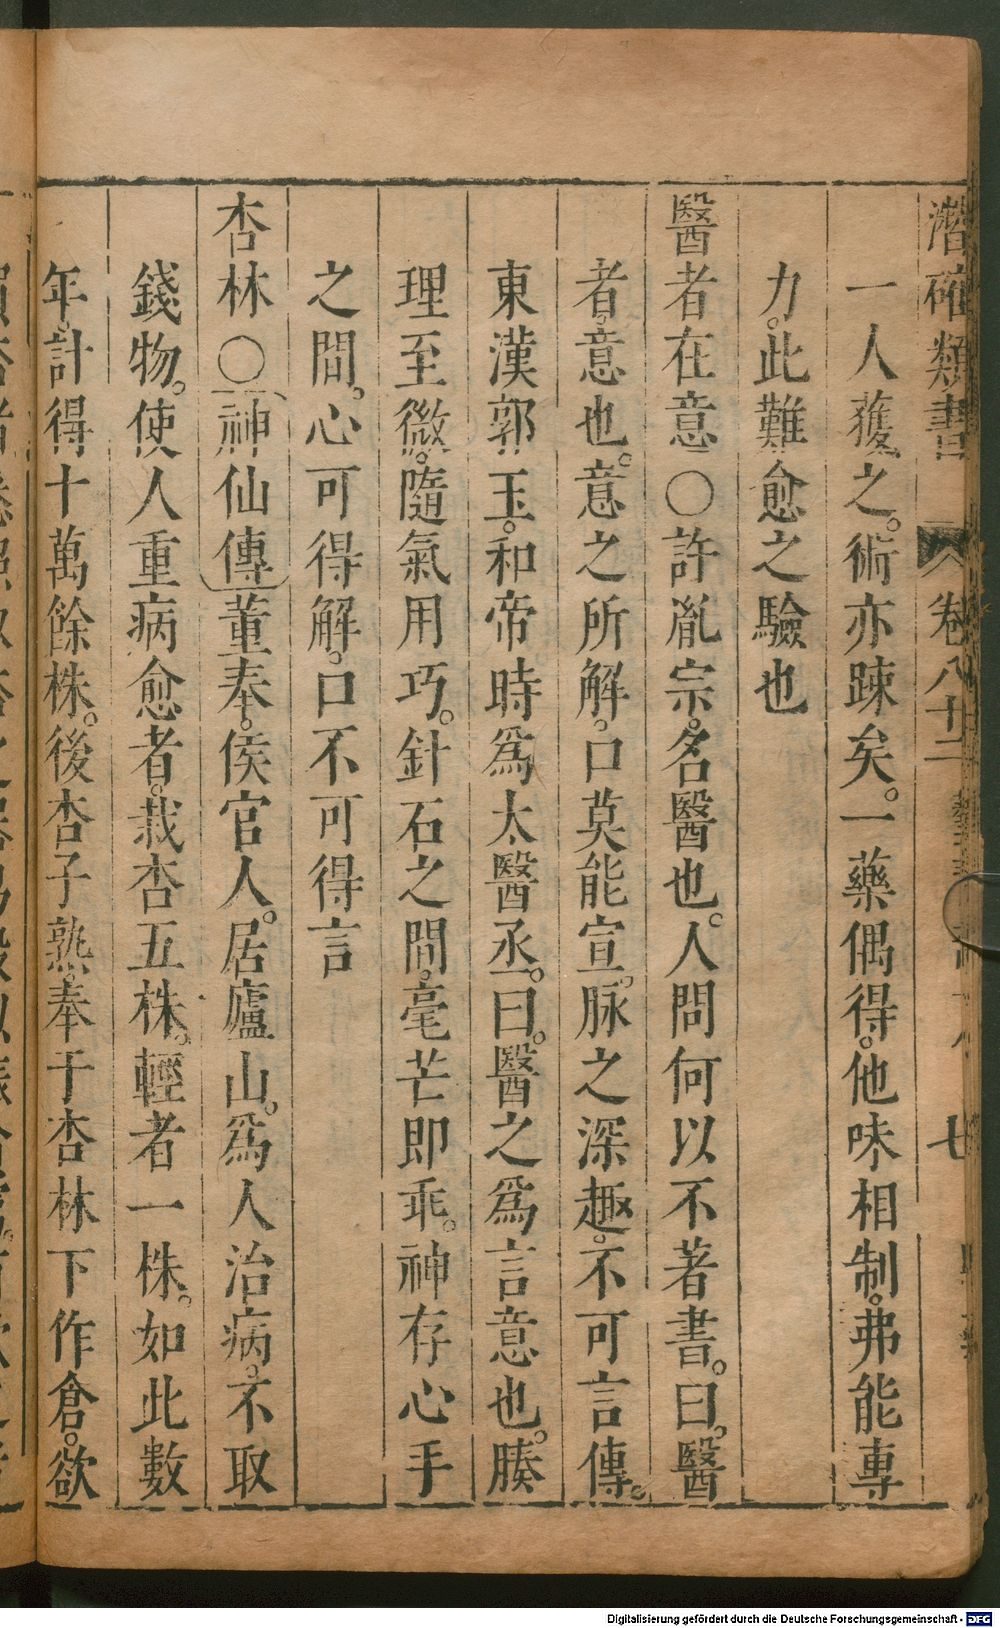 潛確類書 卷八十二 七
一人獲之。術亦踈矣。一藥偶得。他味相制。弗能專
力。此難愈之驗也
醫者在意〇許胤宗。名醫也。人問何以不著書。曰。醫
者。意也。意之所解。口莫能宣。脉之深趣。不可言傳。
東漢郭玉。和帝時爲太醫丞。曰。醫之爲言意也。腠
理至微。隨氣用巧。針石之間。毫芒即乖。神存心手
之間。心可得解。口不可得言
杏林〇神仙傳董奉。侯官人。居廬山。爲人治病。不取
錢物。使人重病愈者。栽杏五株。輕者一株。如此數
年。計得十萬餘株。後杏子熟。奉于杏林下作倉。欲
Digitalisierung gefördert durch die Deutsche Forschungsgemeinschaft - DFG